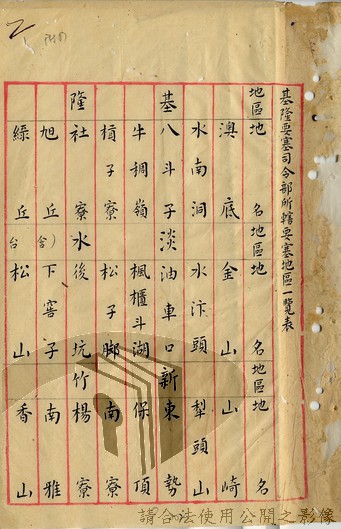 基隆要塞司令部所轄要塞地區一覽表
地區地名地區地名地區地名
澳底金山山崎
水南洞水汴頭犁頭山
基八斗子淡油車口新東勢
牛稠嶺楓櫃斗湖保頂
槓子寮松子脚南寮
隆社寮水後坑竹楊寮
旭丘下窖子南雅
綠丘松山香山
請合法使用公開之影像